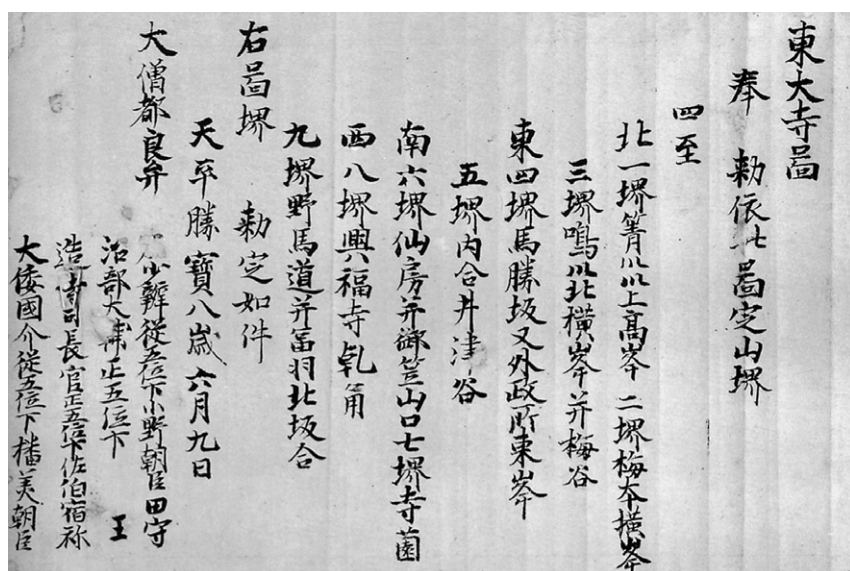 東大寺啚
奉 勅依此啚定山堺
四至
北一堺菁川川上高峯 二堺梅本横峯
三堺鳴川北横峯并梅谷
東四堺馬勝坂又外政所東峯
五堺内合井津谷
南六堺仙房并御笠山口七堺寺薗
西八堺興福寺乹角
九堺野馬道并富羽北坂合
右啚堺 勅定如件
天平勝寳八歳六月九日
大僧都良弁 少辨従五位下小野朝臣田守
治部大甫正五位下 王
造寺司長官正五位下佐伯宿祢
大倭國介従五位下播美朝臣